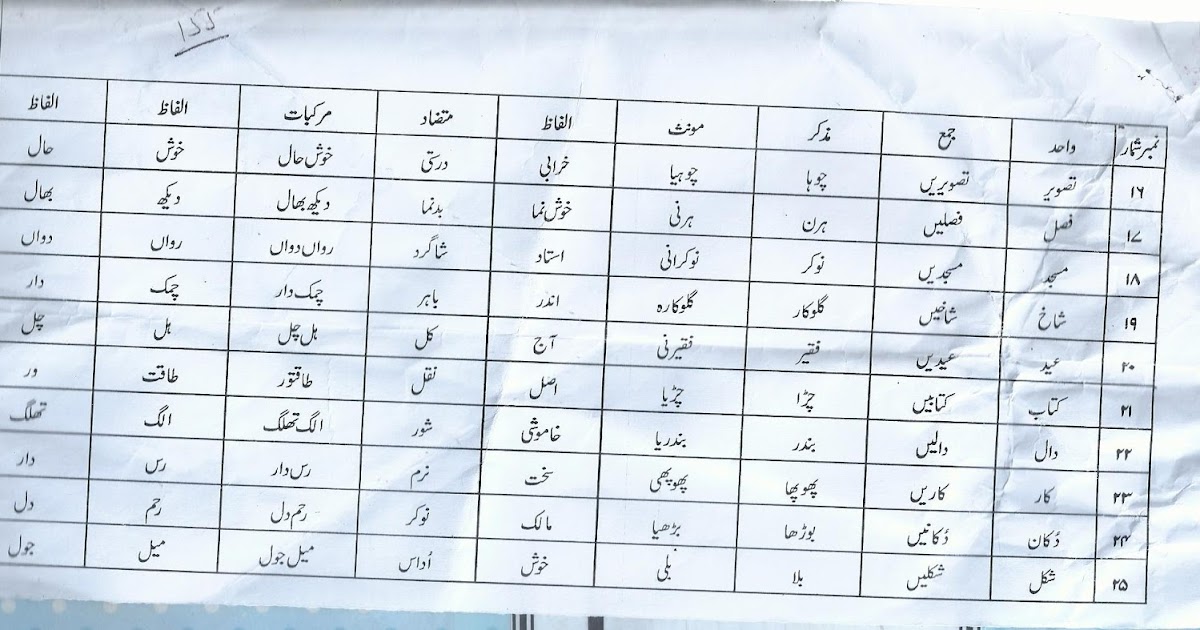 نمبر شمار واحد جمع مذکر مونث الفاظ متضاد مرکبات الفاظ الفاظ
۱۶ تصویر تصویریں چوہا چوہیا خرابی درستی خوش حال خوش حال
۱۷ فصل فصلیں ہرن ہرنی خوش نما بدنما دیکھ بھال دیکھ بھال
۱۸ مسجد مسجدیں نوکر نوکرانی استاد شاگرد رواں دواں رواں دواں
۱۹ شاخ شاخیں گلوکار گلوکارہ اندر باہر چمک دار چمک دار
۲۰ عید عیدیں فقیر فقیرنی آج کل ہل چل ہل چل
۲۱ کتاب کتابیں چڑا چڑیا اصل نقل طاقتور طاقت ور
۲۲ دال دالیں بندر بندریا خاموشی شور الگ تھلگ الگ تھلگ
۲۳ کار کاریں پھوپھا پھوپھی سخت نرم رس دار رس دار
۲۴ دُکان دُکانیں بوڑھا بڑھیا مالک نوکر رحم دل رحم دل
۲۵ شکل شکلیں بلا بلی خوش اُداس میل جول میل جول